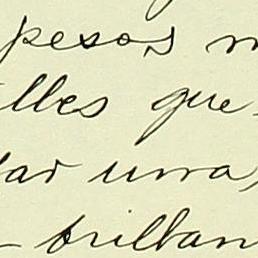 pesos m
lles que
tar una,
- brillan